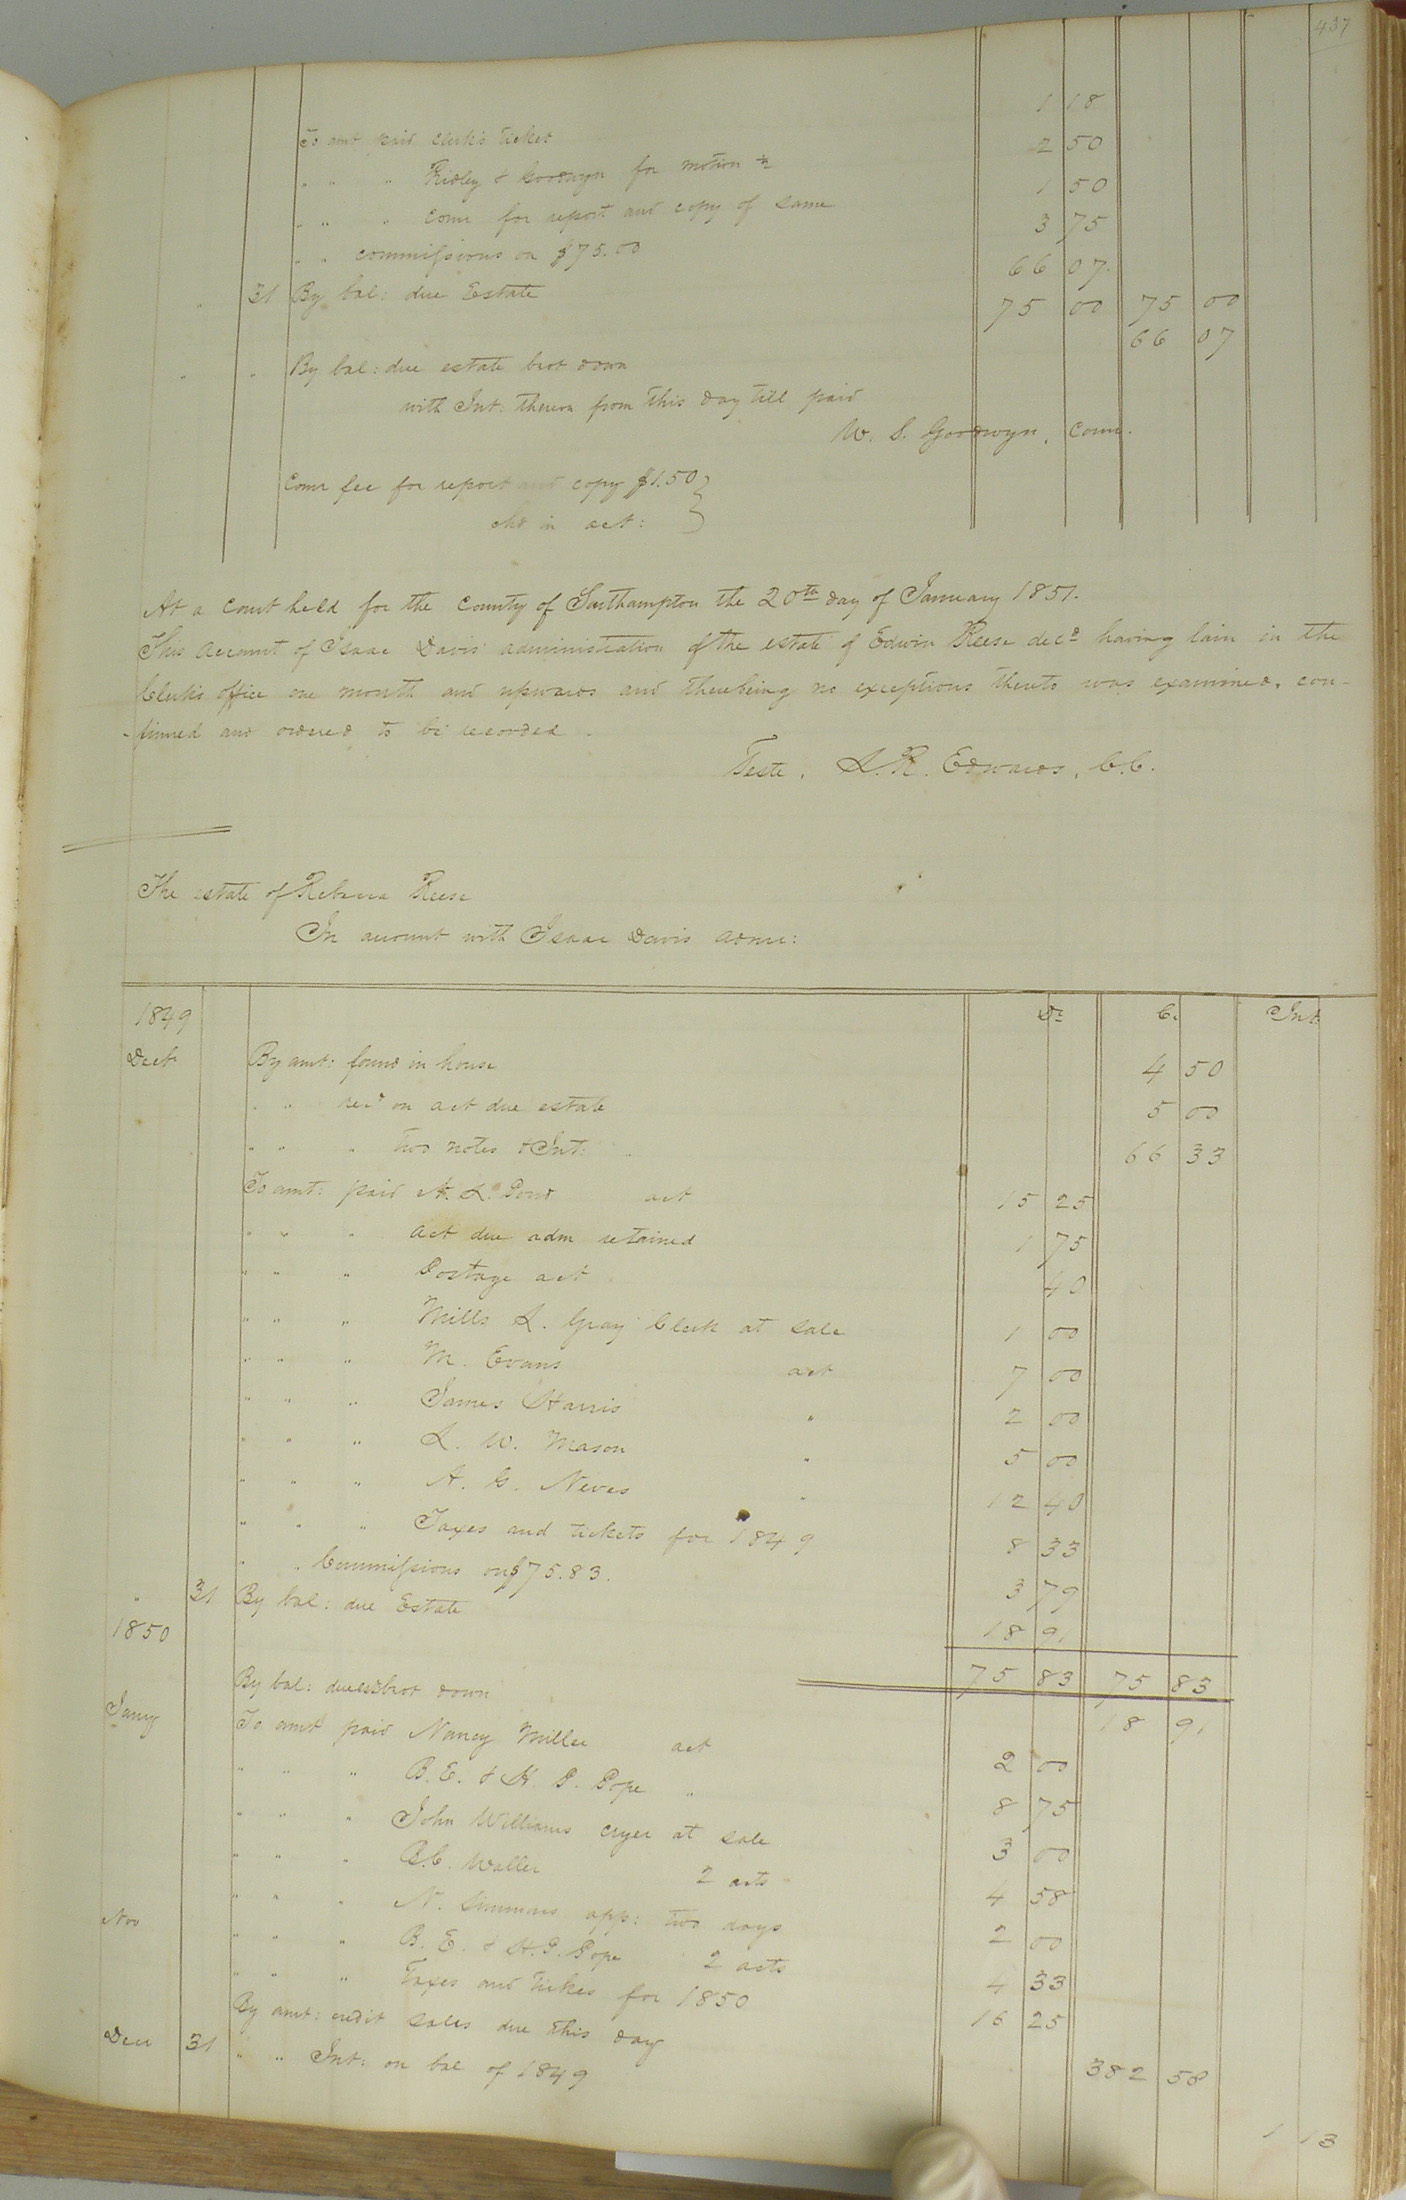 437
To amt paid clerk's ticket 1 18
" " " Ridley & Goodwyn for motion &c 2 50
" " " comr for report and copy of same 1 50
" " commissions on $75.00 3 75
" 31 By bal: due Estate 66 07
75 00 75 00
" " By bal: due estate brot down 66 07
with Int: thereon from this day till paid
W. S. Goodwyn, Comr.
Comr fee for report and copy $1.50 }
chd in act: }
At a court held for the County of Southampton the 20th day of January 1851.
This Account of Isaac Davis' administration of the estate of Edwin Reese decd having lain in the
Clerk's office one month and upwards and there being no exceptions thereto was examined, con-
-firmed and ordered to be recorded.
Teste, L. R. Edwards, C.C.
The estate of Rebecca Reese
In account with Isaac Davis admr:
1849 Dr Cr Int
Decr By amt: found in house 4 50
" " recd on act due estate 5 00
" " " two notes & Int: 66 33
To amt: paid N. L. Pond act 15 25
" " " act due adm retained 1 75
" " " Postage act 40
" " " Mills L. Gray Clerk at sale 1 00
" " " M. Evans act 7 00
" " " James Harris " 2 00
" " " L. W. Mason " 5 00
" " " A. G. Neves " 12 40
" " " Taxes and tickets for 1849 8 33
" " Commissions on $75.83. 3 79
" 31 By bal: due Estate 18 91
1850
75 83 75 83
By bal: due est brot down 18 91
Jany To amt paid Nancy Miller act 2 00
" " " B. E. & H. P. Pope " 8 75
" " " John Williams cryer at sale 3 00
" " " B.C. Waller 2 acts 4 58
" " " N. Simmons app: two days 2 00
Nov " " " B. E. & H. P. Pope 2 acts 4 33
" " " Taxes and tickes for 1850 16 25
By amt: credit sales due this day 382 58
Decr 31 " " Int: on bal of 1849 1 13